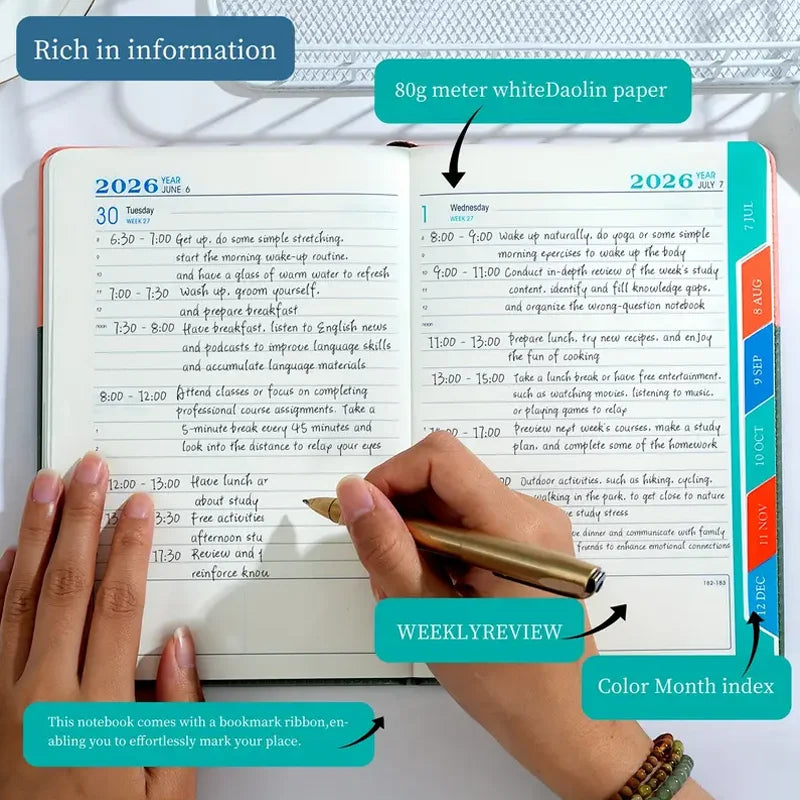 Rich in information
80g meter whiteDaolin paper
2026 YEAR
JUNE 6
30 Tuesday
WEEK 27
8 6:30 - 7:00 Get up. do some simple stretching.
9 start the morning wake-up routine.
10 and have a glass of warm water to refresh
11 7:00 - 7:30 Wash up. groom yourself.
12 and prepare breakfast
noon 7:30 - 8:00 Have breakfast. listen to English news
and podcasts to improve language skills
and accumulate language materials
8:00 - 12:00 Attend classes or focus on completing
professional course assignments. Take a
1 5-minute break every 45 minutes and
2 look into the distance to relap your eyes
12:00 - 13:00 Have lunch ar
about study
3:30 Free activities
afternoon stu
17:30 Review and
reinforce know
2026 YEAR
JULY 7
1 Wednesday
WEEK 27
8 8:00 - 9:00 Wake up naturally. do yoga or some simple
9 morning epercises to wake up the body
10 9:00 - 11:00 Conduct in-depth review of the week's study
11 content. identify and fill knowledge gaps.
12 and organize the wrong-question notebook
noon
11:00 - 13:00 Prepare lunch. try new recipes. and enjoy
the fun of cooking
13:00 - 15:00 Take a lunch break or have free entertainment.
such as watching movies. listening to music.
or playing games to relap
- 17:00 Preview nept week's courses. make a study
plan. and complete some of the homework
Outdoor activities. such as hiking. cycling.
walking in the park. to get close to nature
study stress
dinner and communicate with family
friends to enhance emotional connections
182-183
7 JUL
8 AUG
9 SEP
10 OCT
11 NOV
12 DEC
WEEKLYREVIEW
Color Month index
This notebook comes with a bookmark ribbon,en-
abling you to effortlessly mark your place.